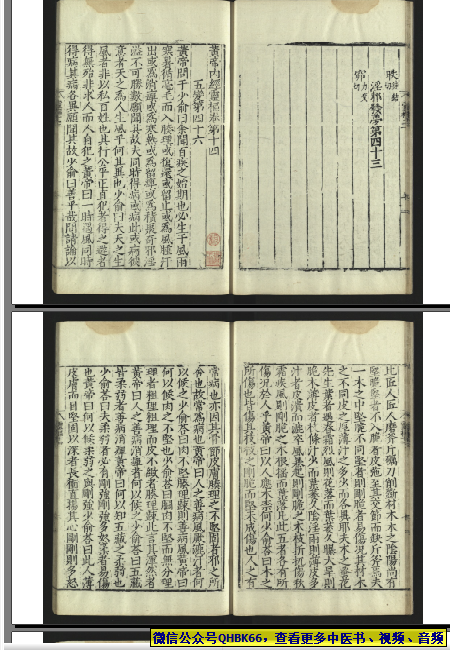 淫邪發夢第四十三
黃帝內經靈樞卷第十四
五變第四十六
黃帝問于少俞曰余聞百疾之始期也必生于風雨
寒暑循毫毛而入腠理或復還或留止或為風腫汗
出或為消癉或為寒熱或為留痺或為積聚奇邪淫
溢不可勝數願聞其故夫同時得病或病此或病彼
意者天之為人生風乎何其異也少俞曰夫天之生
風者非以私百姓也其行公平正直犯者得之避者
得無殆非求人而人自犯之黃帝曰一時遇風同時
得病其病各異願聞其故少俞曰善乎哉問請論以
比匠人匠人磨斧斤礪刀削斲材木木之陰陽尚有
堅脆堅者不入脆者皮弛至其交節而缺斤斧焉夫
一木之中堅脆不同堅者則剛脆者易傷況其材木
之不同皮之厚薄汁之多少而各異耶夫木之蚤花
先生葉者遇春霜烈風則花落而葉萎久曝大旱則
脆木薄皮者枝條汁少而葉萎久陰淫雨則薄皮多
汁者皮潰而漉卒風暴起則剛脆之木枝折杌傷秋
霜疾風則剛脆之木根搖而葉落凡此五者各有所
傷況於人乎黃帝曰以人應木奈何少俞答曰木之
所傷也皆傷其枝枝之剛脆而堅未成傷也人之有
常病也亦因其骨節皮膚腠理之不堅固者邪之所
舍也故常為病也黃帝曰人之善病風厥漉汗者何
以候之少俞答曰肉不堅腠理踈則善病風黃帝曰
何以候肉之不堅也少俞答曰膕肉不堅而無分理
理者粗理粗理而皮不緻者腠理踈此言其渾然者
黃帝曰人之善病消癉者何以候之少俞答曰五藏
皆柔弱者善病消癉黃帝曰何以知五藏之柔弱也
少俞答曰夫柔弱者必有剛強剛強多怒柔者易傷
也黃帝曰何以候柔弱之與剛強少俞答曰此人薄
皮膚而目堅固以深者長衝直揚其心剛剛則多怒
微信公众号QHBK66，查看更多中医书、视频、音频